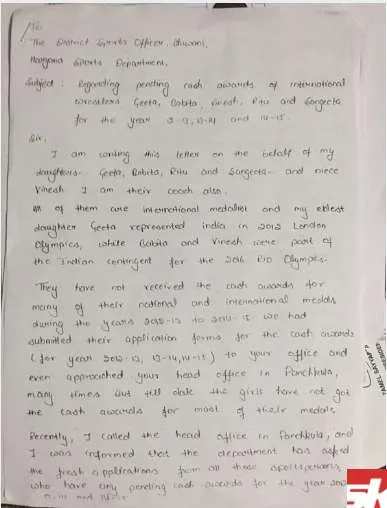 To
The District Sports Officer, Bhiwani,
Haryana Sports Department.
Subject : Regarding pending cash awards of international
wrestlers Geeta, Babita, Vinesh, Ritu and Sangeeta
for the year 12-13, 13-14 and 14-15.
Sir,
I am writing this letter on the behalf of my
daughters Geeta, Babita, Ritu and Sangeeta and niece
Vinesh I am their coach also.
All of them are international medalist and my eldest
daughter Geeta represented india in 2012 London
Olympics, while Babita and Vinesh were part of
the Indian contingent for the 2016 Rio Olympics.
They have not received the cash awards for
many of their national and international medals
during the years 2012-13 to 2014-15 We had
submitted their application forms for the cash awards
(for year 2012-13, 13-14, 14-15) to your office and
even approached your head office in Panchkula,
many times but till date the girls have not got
the cash awards for most of their medals.
Recently, I called the head office in Panchkula, and
I was informed that the department has asked
the fresh applications from all those sportspersons,
who have any pending cash awards for the year 2012
SK